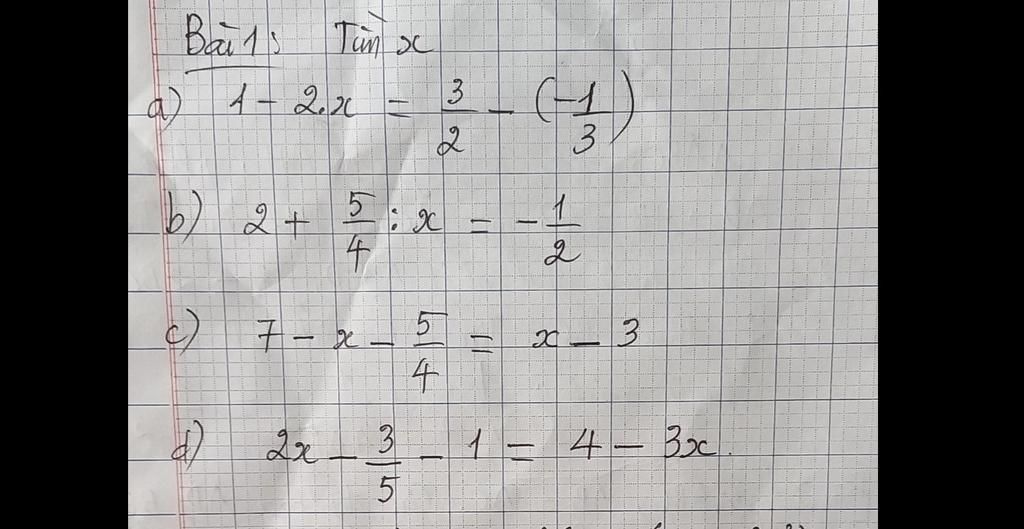 Bài 1: Tìm x
a) 1 - 2.x = 3/2 - (-1/3)
b) 2 + 5/4 : x = -1/2
c) 7 - x - 5/4 = x - 3
d) 2x - 3/5 - 1 = 4 - 3x.